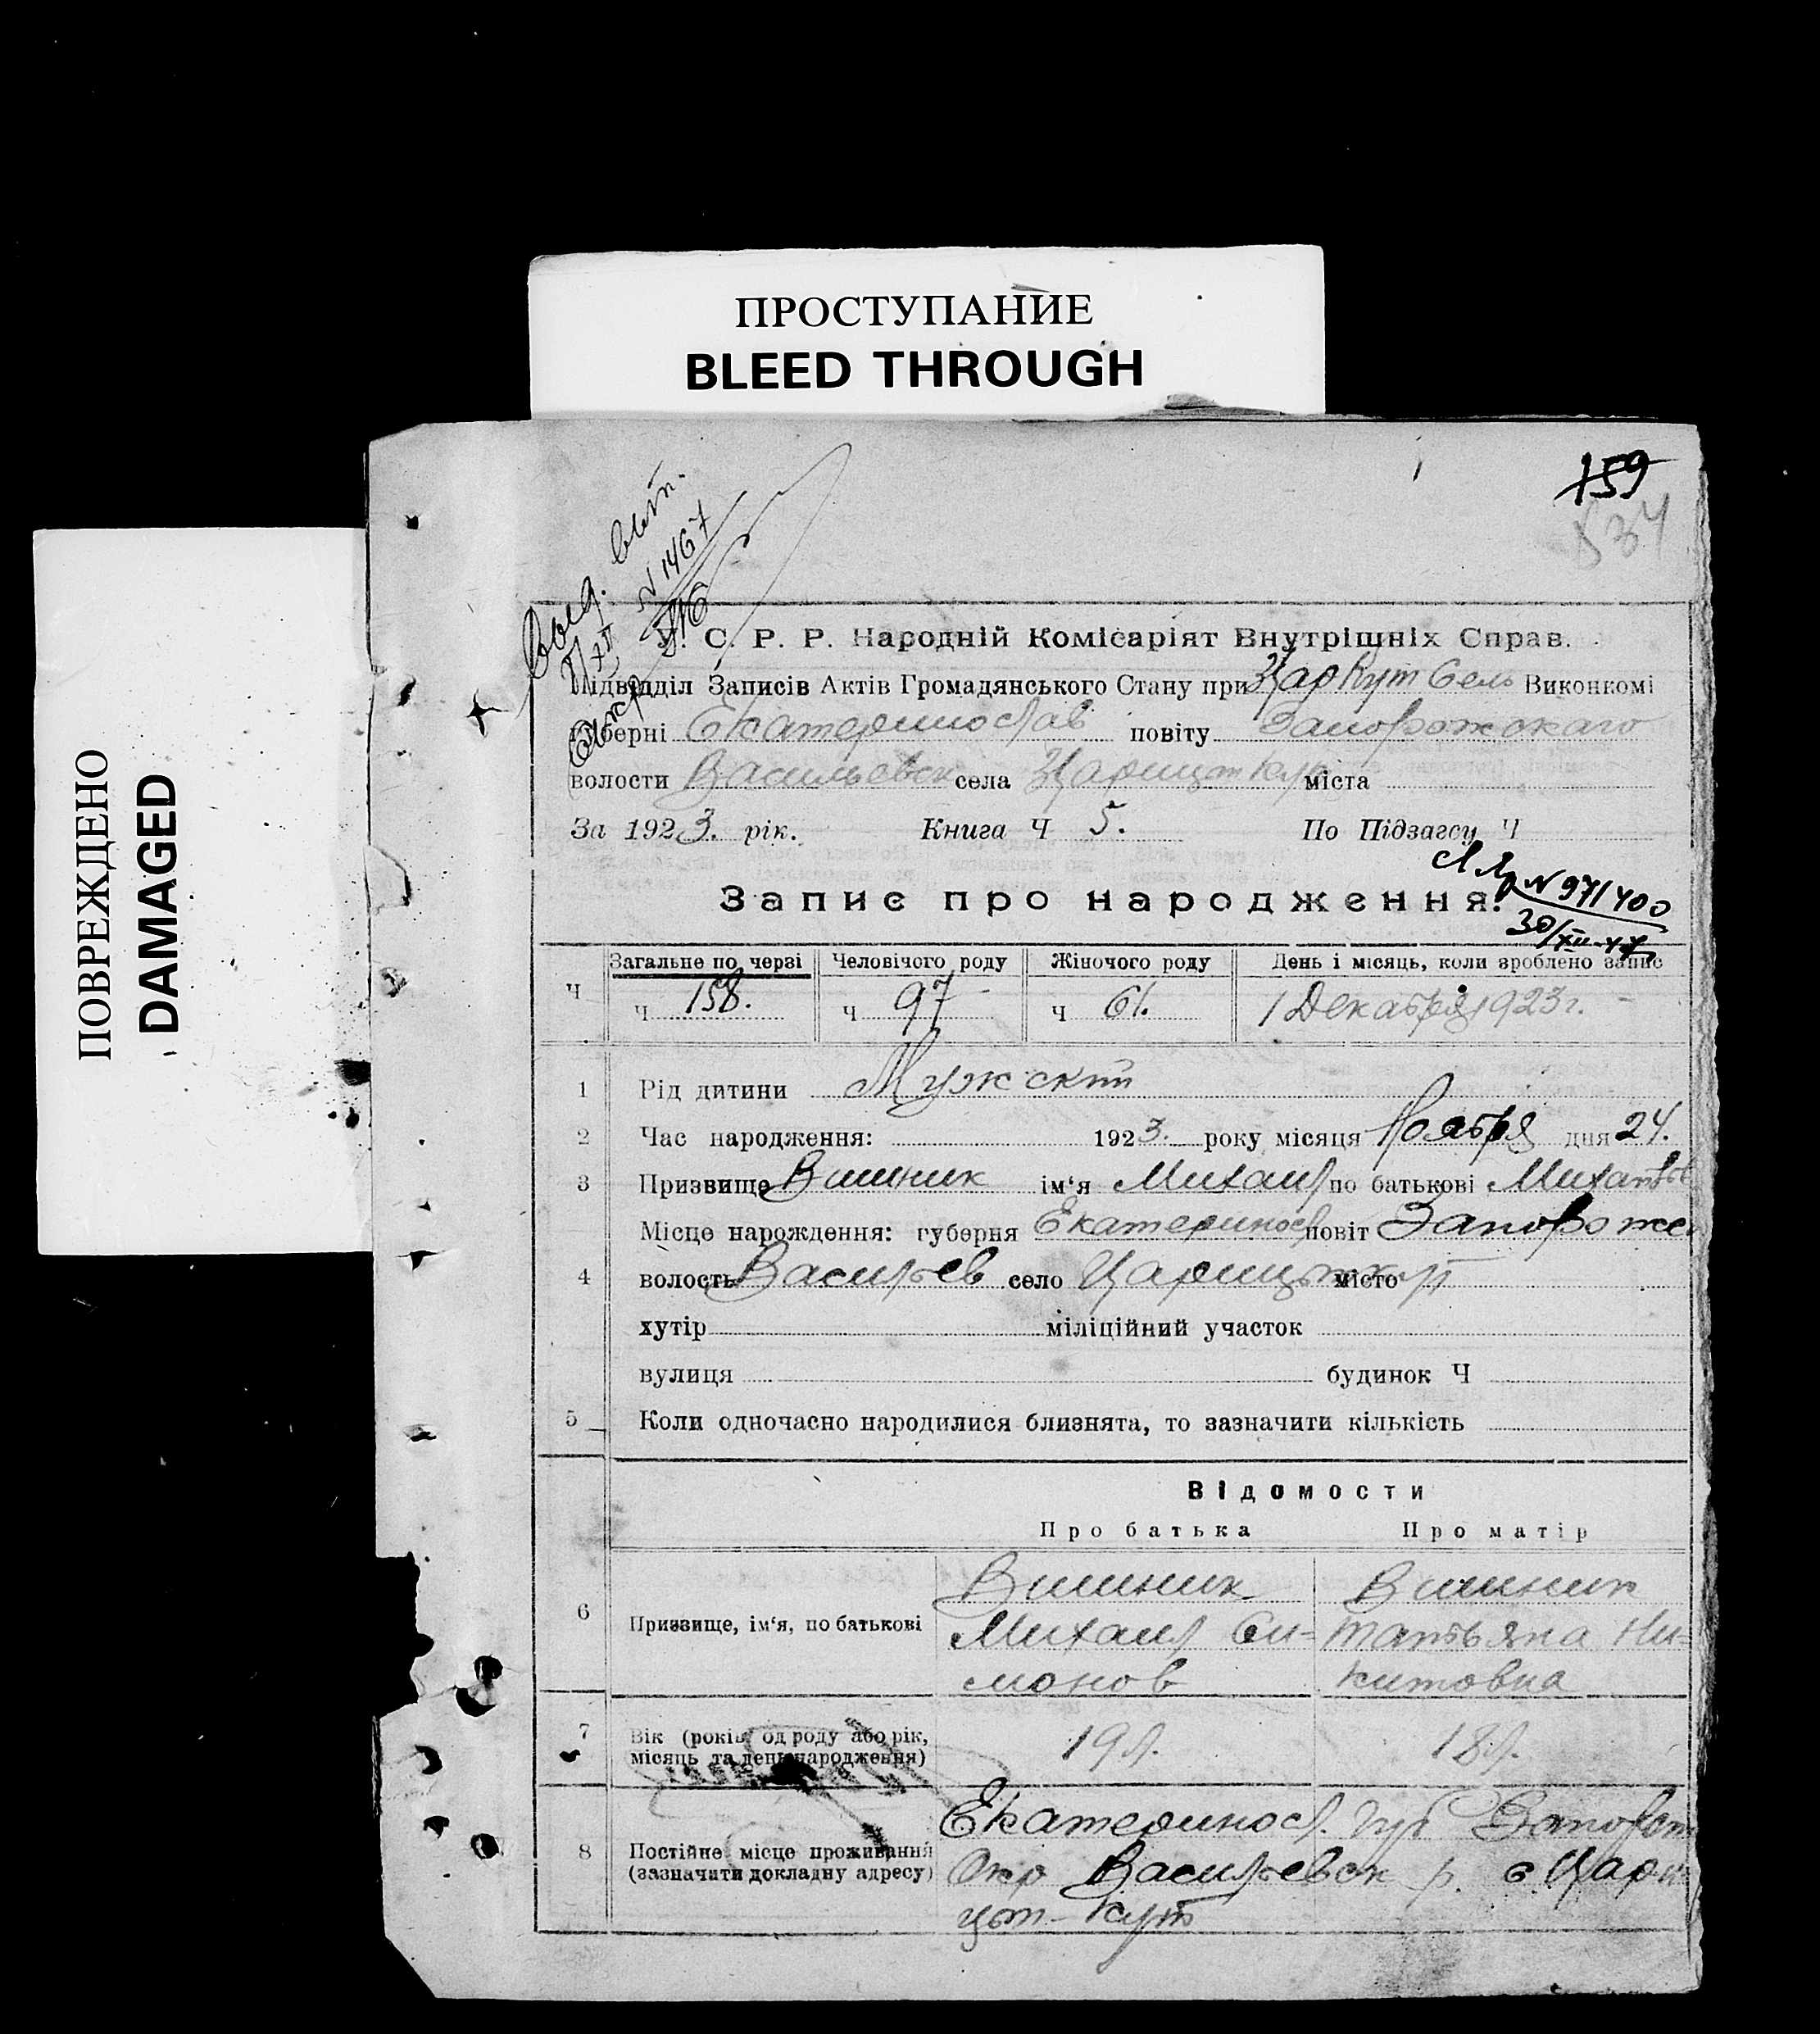 ПРОСТУПАНИЕ
BLEED THROUGH
ПОВРЕЖДЕНО
DAMAGED
159
534
Выд. вып.
N 1467
XII
С. Р. Р. Народній Комісаріят Внутрішніх Справ.
Підвідділ Записів Актів Громадянського Стану при Царкут Сель Виконкомі
губерні Екатеринослав повіту Запорожскаго
волости Васильевск села Царицот Кут міста
За 1923. рік. Книга Ч 5. По Підзагсу Ч
N 971400
30/XII-47
Запис про народження.
Ч Загальне по черзі Человічого роду Жіночого роду День і місяць, коли зроблено запис
ч 158. ч 97 ч 61. 1 Декабря 1923 г.
1 Рід дитини Мужской
2 Час народження: 1923. року місяця Ноября дня 24.
3 Призвище Вишник ім‘я Михаил по батькові Михайлов
Місце народження: губерня Екатериносл повіт Запорожс
4 волость Васильев село Царицын кут місто
хутір міліційний участок
вулиця будинок Ч
5 Коли одночасно народилися близнята, то зазначити кількість
Відомости
Про батька Про матір
6 Призвище, ім‘я, по батькові
Вишник Вишник
Михаил Си- Татьяна Ни-
монов китовна
7 Вік (років од роду або рік, місяць та день народження) 19 л. 18 л.
8 Постійне місце проживання (зазначити докладну адресу)
Екатериносл. губ Запорож
Окр Васильевск р. с Цари
цын-Кут